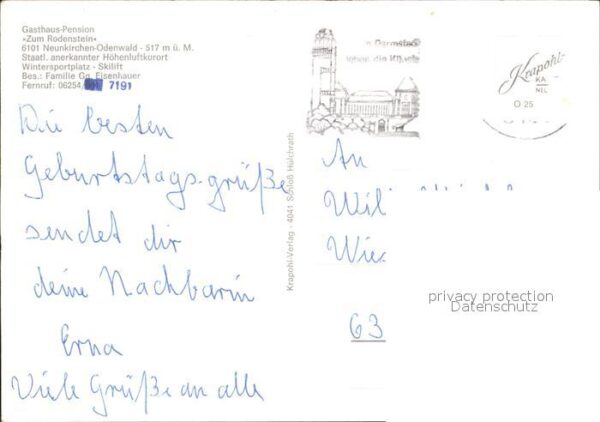 Gasthaus-Pension
»Zum Rodenstein«
6101 Neunkirchen-Odenwald - 517 m ü. M.
Staatl. anerkannter Höhenluftkurort
Wintersportplatz - Skilift
Bes.: Familie Gg. Eisenhauer
Fernruf: 06254/ 7191
Die besten
Geburtstagsgrüße
sendet dir
deine Nachbarin
Erna
Viele Grüße an alle
Krapohl-Verlag - 4041 Schloß Hülchrath
Darmstadt
die Künste
Krapohl-
KA
NEL
O 25
An
Wil
Wie
63
privacy protection
Datenschutz